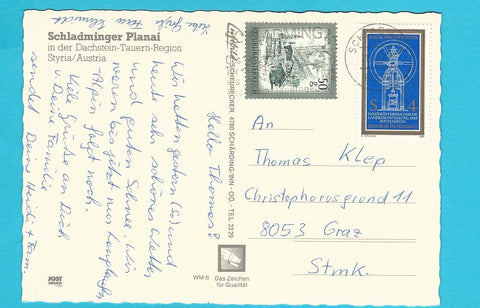 Schladminger Planai
in der Dachstein-Tauern-Region
Styria/Austria
Liebe Grüße
Hallo Thomas!
Wir hatten gestern (So) und
heute sehr schönes Wetter
und guten Schnee. Wir
waren bis jetzt nur Langlaufen
Alpin folgt noch.
Viele Grüße an Dich
u. Deine Familie
sendet Deine Heidi + Fam.
SCHEURECKER, 4780 SCHÄRDING/INN - OÖ. - TEL. 2329
An
Thomas Klep
Christophorusgrund 11
8053 Graz
Stmk.
50
REPUBLIK ÖSTERREICH
S 4
NIEDERÖSTERREICHISCHE
LANDESAUSSTELLUNG 1989
REPUBLIK ÖSTERREICH
WM 6
Das Zeichen
für Qualität
JOST
DRUCK